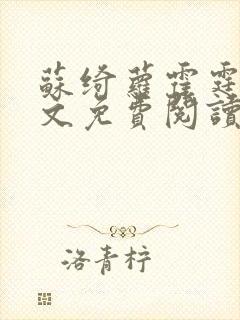 蘇綺蘿霍霆
文免費閱讀
洛青梓